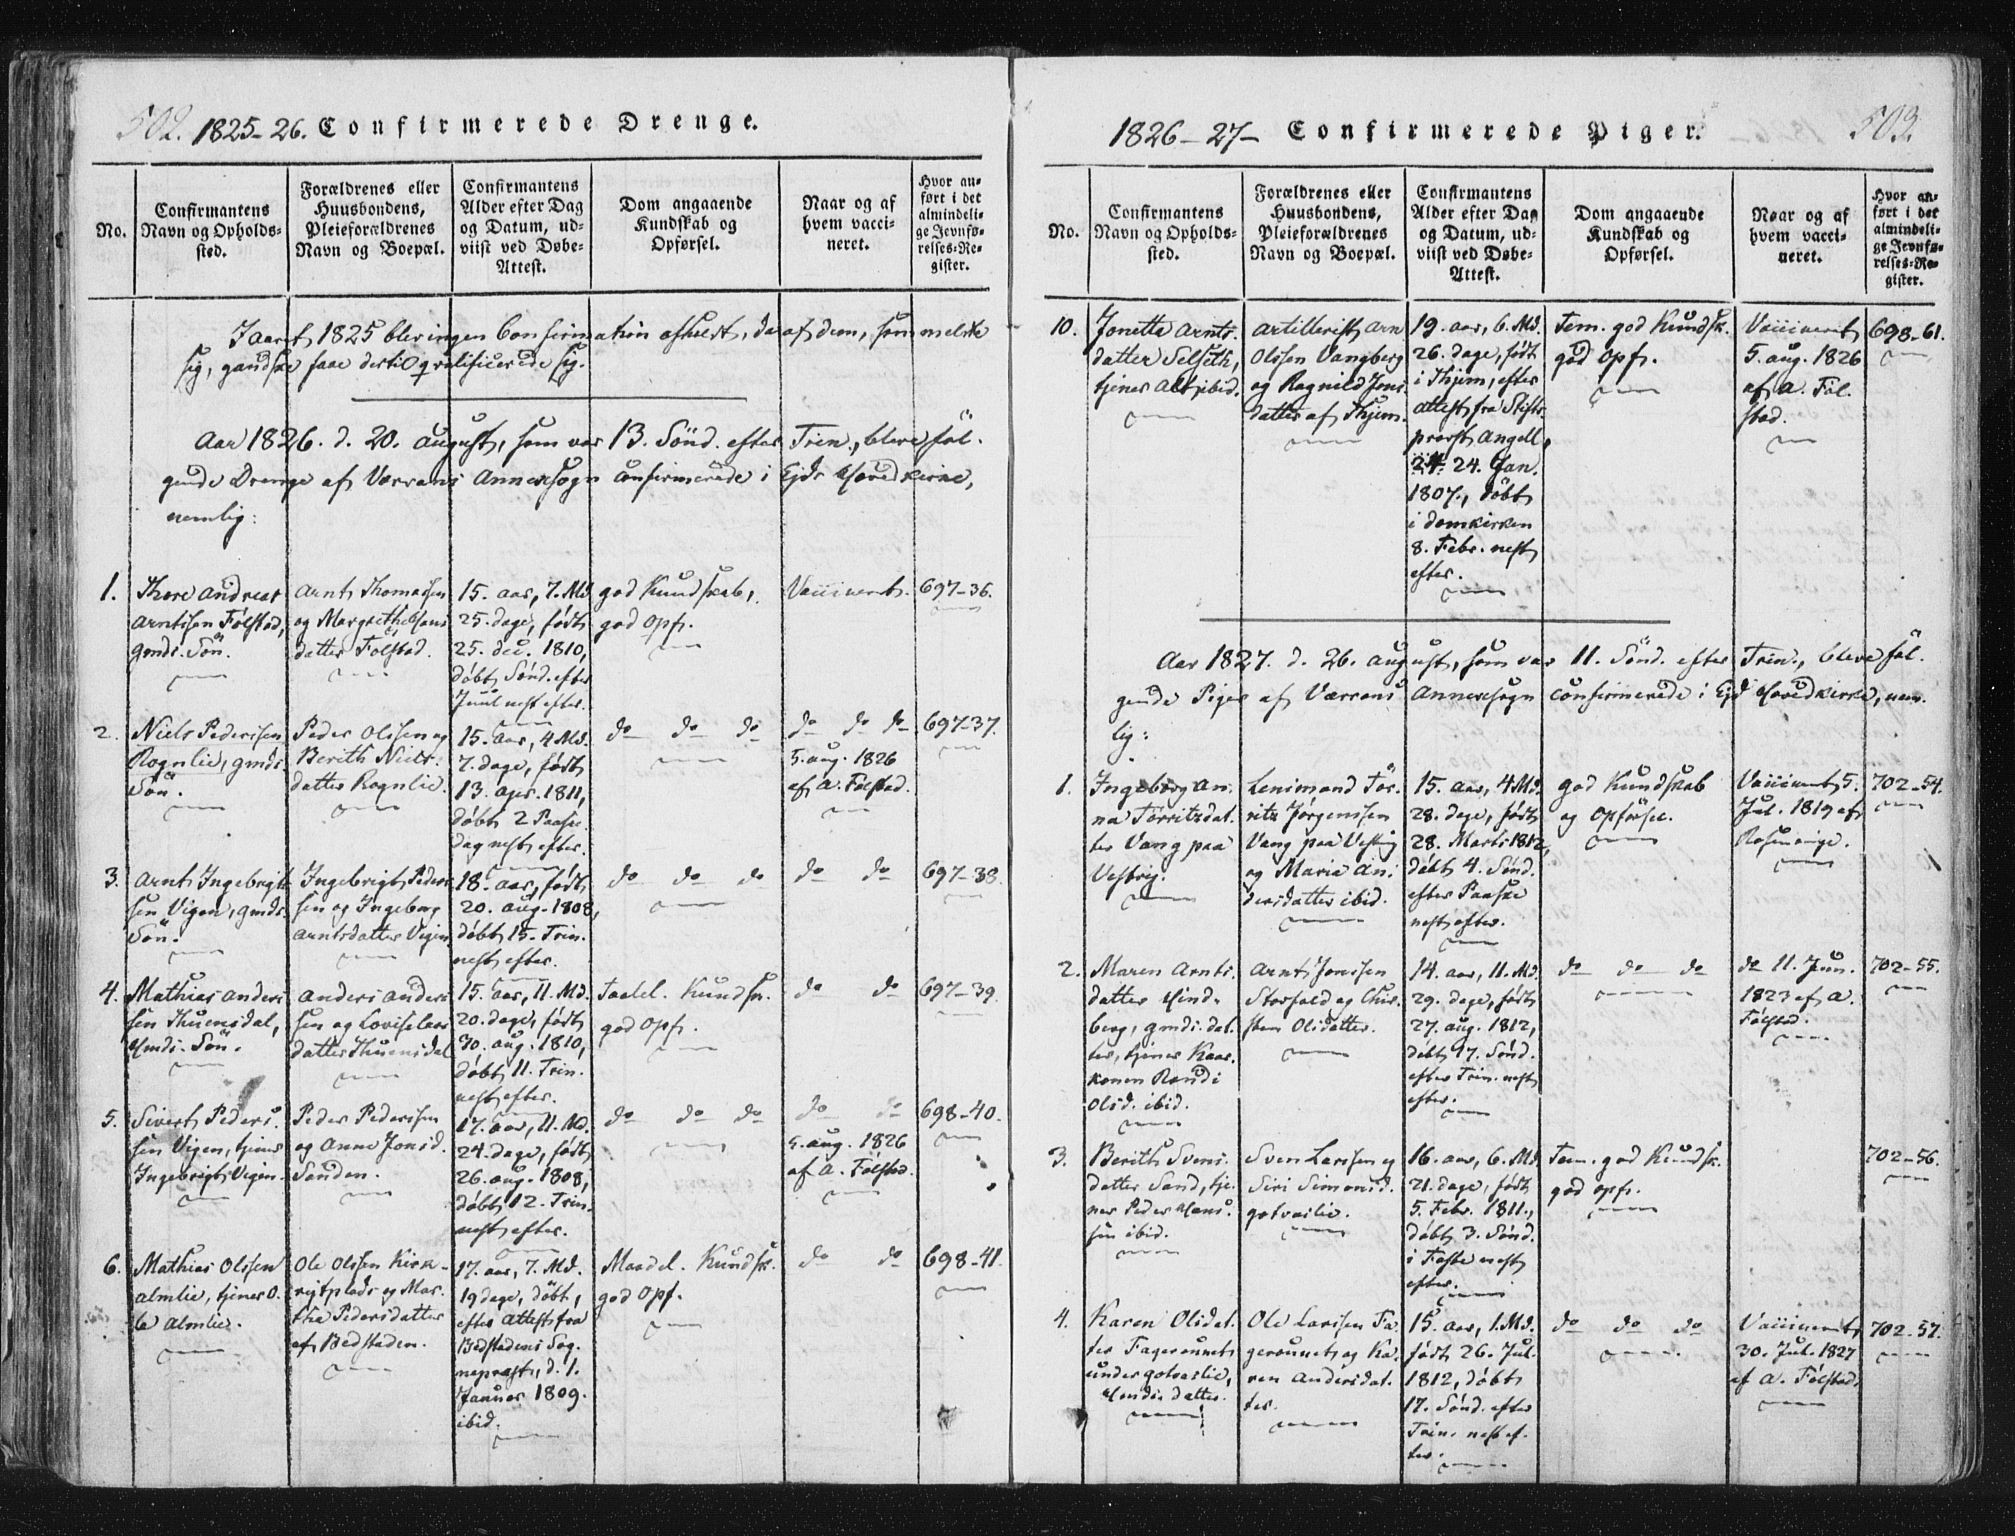 502. 1825-26. Confirmerede Drenge.
No.
Confirmantens
Navn og Opholds-
sted.
Forældrenes eller
Huusbondens,
Pleieforældrenes
Navn og Boepæl.
Confirmantens
Alder efter Dag
og Datum, ud-
viist ved Døbe-
Attest.
Dom angaaende
Kundskab og
Opførsel.
Naar og af
hvem vacci-
neret.
Hvor an-
ført i det
almindeli-
ge Jevnfø-
relses-Re-
gister.
I aaret 1825 blev ingen Confirmation afholdt, da af dem, som meldte
sig, gandske faae dertil qvalificerede sig.
Aar 1826. d. 20. august, som var 13. Sönd. efter Trin., bleve föl-
gende Drenge af Værrans Annexsogn confirmerede i Ejds Hovedkirke,
nemlig:
1.
Thore Andreas
Arntsen Følstad,
gmds. Sön.
Arnt Thomassen
og Margrethe Hans
datter Følstad.
15. aar, 7. Md.
25. dage, født
25. dec. 1810,
døbt Sønd. efter
Juul nest efter.
god Kundskab,
god Opf.
Vaccineret.
697-36.
2.
Niels Pedersen
Rognlie, gmds.
Sön.
Peder Olssen og
Berith Niels-
datter Rognlie.
15. aar, 4 Md.
7. dage, født
13. Apr. 1811,
døbt 2 Paaske
dag nest efter.
do do do
do do do
5. aug. 1826
af A. Følstad.
697-37.
3.
Arnt Ingebrigt-
sen Vigen, gmds.
Sön.
Ingebrigt Peder-
sen og Ingeborg
Arntsdatter Vigen
18. aar, født
20. aug. 1808,
døbt 15. Trin.
nest efter.
do do do
do do
697-38.
4.
Mathias Anders
sen Thuensdal,
Hmds. Sön.
Anders Anders
sen og Lovise Lars
datter Thuensdal
15. aar, 11. Md.
20. dage, født
30. aug. 1810,
døbt 11. Trin.
nest efter.
Taalel. Kundsk.
god Opf.
do do
697-39.
5.
Sivert Peders-
sen Vigen, tjener
Ingebrigt Vigen.
Peder Pedersen
og Anne Jonsd.
Sanden.
17. aar, 11. Md.
24. dage, født
26. aug. 1808,
døbt 12. Trin.
nest efter.
do do do
do do
5. aug. 1826
af A. Følstad.
698-40.
6.
Mathias Olssen
Almlie, tjener O-
le Almlie.
Ole Olssen Kirk-
og Mar-
tha Pedersdatter
af Bedstaden.
17. aar, 7. Md.
19 dage, döbt,
efter Attest fra
Bedstadens Sog-
nepræst, d. 1.
Januar 1809.
ibid.
Maadel. Kundsk.
god Opf.
do do
698-41.
1826-27- Confirmerede Piger. 503.
No.
Confirmantens
Navn og Opholds-
sted.
Forældrenes eller
Huusbondens,
Pleieforældrenes
Navn og Boepæl.
Confirmantens
Alder efter Dag
og Datum, ud-
viist ved Døbe-
Attest.
Dom angaaende
Kundskab og
Opførsel.
Naar og af
hvem vacci-
neret.
Hvor an-
ført i det
almindeli-
ge Jevnfø-
relses-Re-
gister.
10.
Jonetta Arnts-
datter Selseth,
tjener ibid.
Artillerist Arn
Olssen Vangberg
og Ragnild Jons
datter af Thjem.
19. aar, 6. Md.
26. dage, født
i Thjem, efter
attest fra Stifts
provst Angell,
24. Jan.
1807, döbt
i domkirken
8. Febr. nest
efter.
Tem. god Kundsk.
god Opf.
Vaccineret
5. aug. 1826
af A. Föl-
stad.
698-61.
Aar 1827. d. 26. august, som var 11. Sönd. efter Trin., bleve föl-
gende Piger af Værrans Annexsogn confirmerede i Ejd Hovedkirke, nem-
lig:
1.
Ingeborg An-
na Tørritzdat-
ter Vang paa
Vestvig.
Lensmand Tör-
ritz Jørgenssen
Vang paa Vestvig
og Maria An-
dersdatter ibid.
15. aar, 4 Md.
28. dage, født
28. Marts 1812,
döbt 4. Sønd.
efter Paaske
nest efter.
god Kundskab
og Opførsel.
Vaccineret 5.
Jul. 1819 af
Rosenvinge.
702-54.
2.
Maren Arnts-
datter Hind-
berg, gmds. dat-
ter, tjener Kaar-
konen Randi
Olsd. ibid.
Arnt Jonssen
Storfald og Chir-
sten Olsdatter.
14. aar, 11. Md.
29. dage, født
27. aug. 1812,
döbt 17. Sönd.
efter Trin. nest
efter.
do do do
do 11. Jun.
1823 af A.
Følstad.
702-55.
3.
Berith Svens-
datter Sand, tje-
ner Peder Hans-
sen ibid.
Sven Larssen og
Siri Simonsd.
Gotvaslie.
16. aar, 6. Md.
21. dage, født
5. Febr. 1811,
døbt 3. Sönd.
i Faste nest
efter.
Tem. god Kundsk.
god opf.
702-56.
4.
Karen Olsdat-
ter Fagerounet
under Gotvaslie,
Hmds. datter.
Ole Larssen Fa-
gerounet og Ka-
ren Andersdat-
ter.
15. aar, 1. Md.
født 26. Jul.
1812, døbt
17. Sönd. efter
Trin. nest ef-
ter.
do do do
Vaccineret
30. Jul. 1827
af A. Følstad.
702-57.